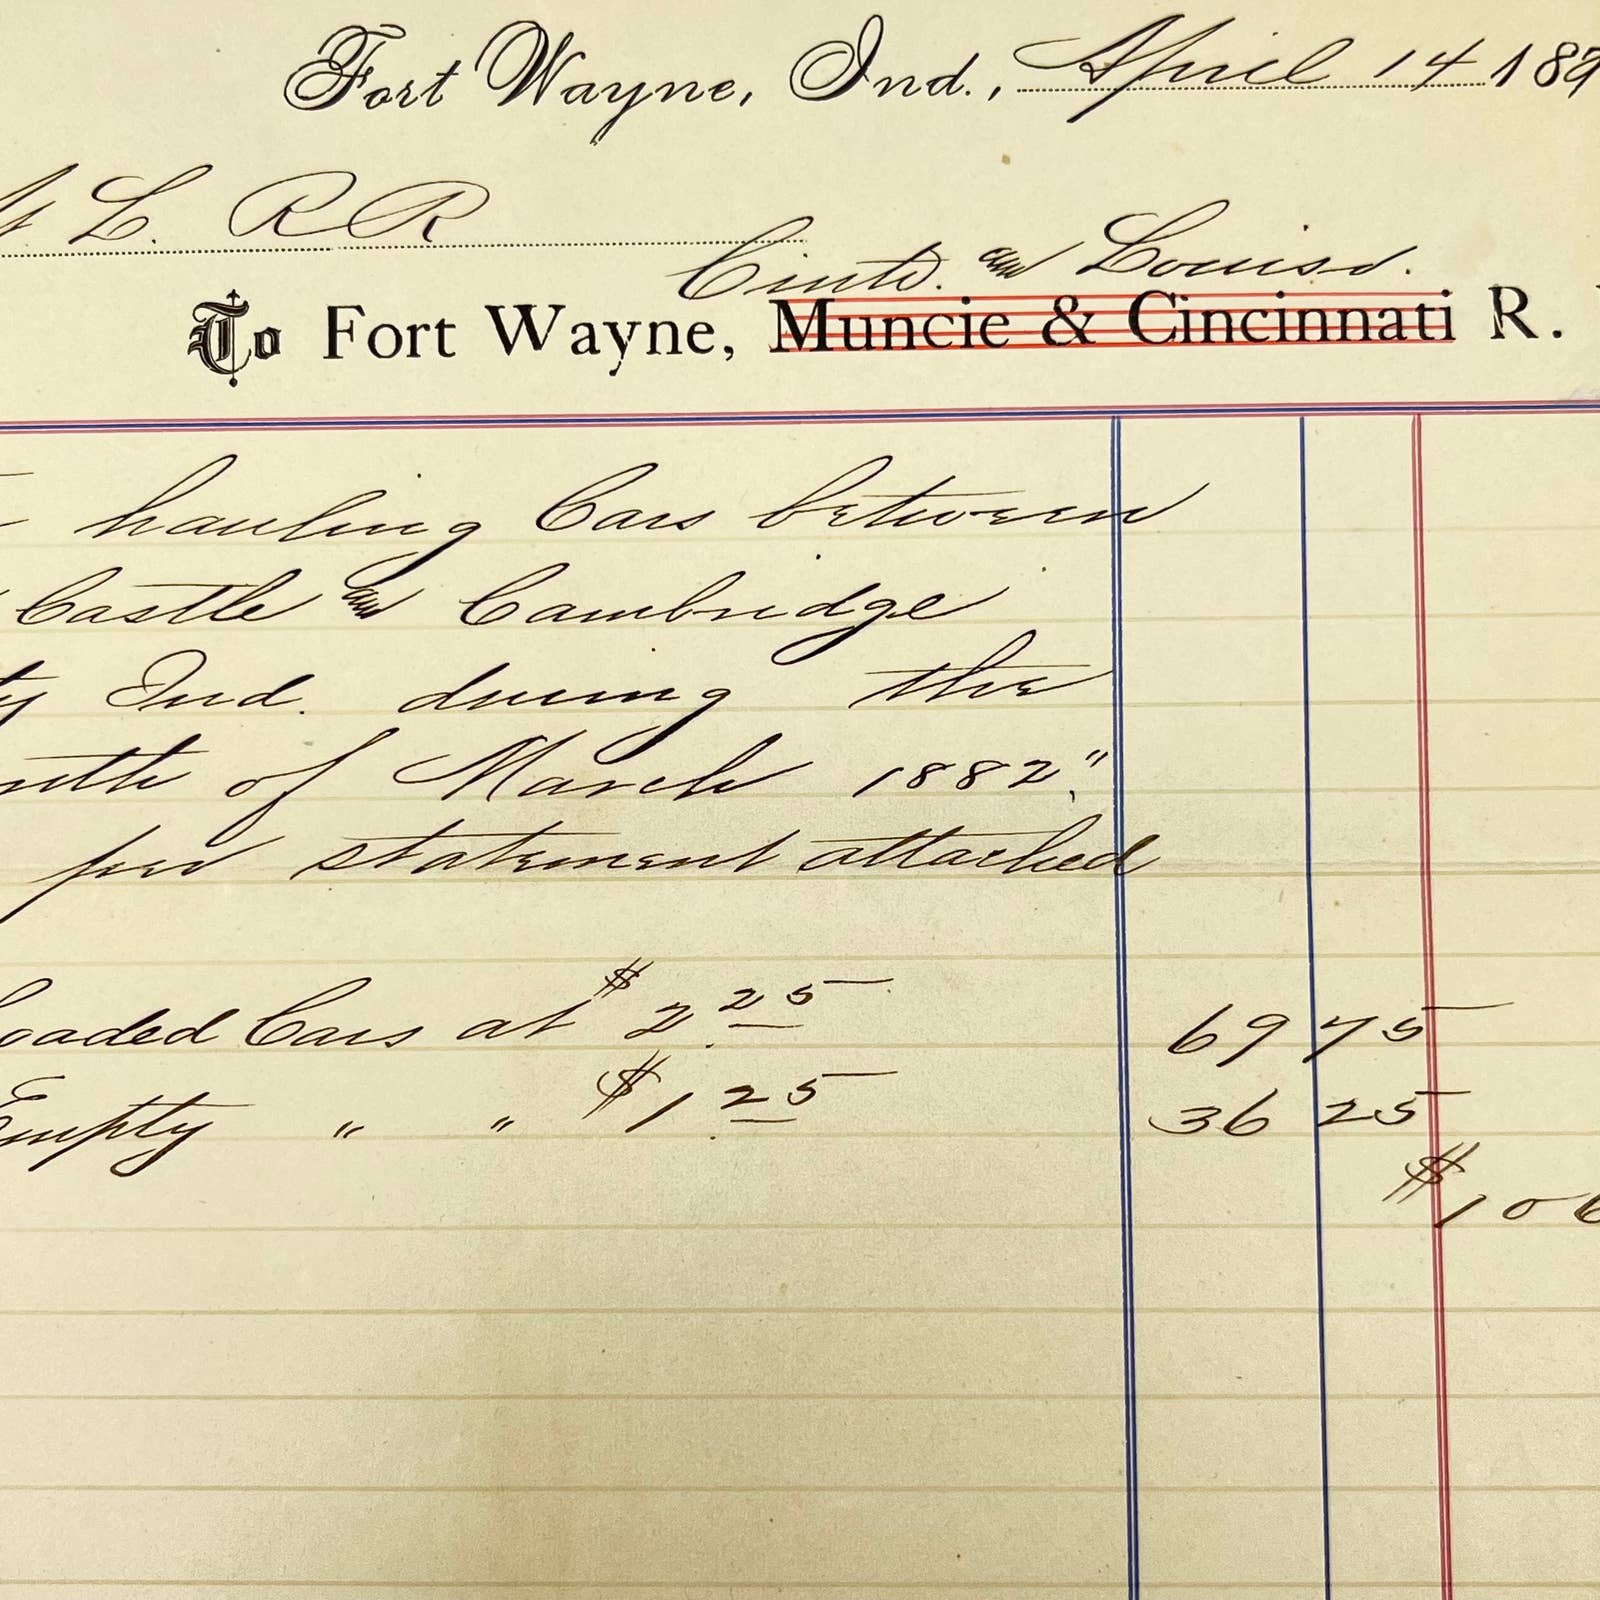 Fort Wayne, Ind., April 14 188
L. RR
Cinti. and Louisv.
To Fort Wayne, Muncie & Cincinnati R.
hauling Cars between
Castle and Cambridge
ty Ind. during the
nth of March 1882"
per statement attached
Loaded Cars at $2.25 69 75
Empty " " $1.25 36 25
$106